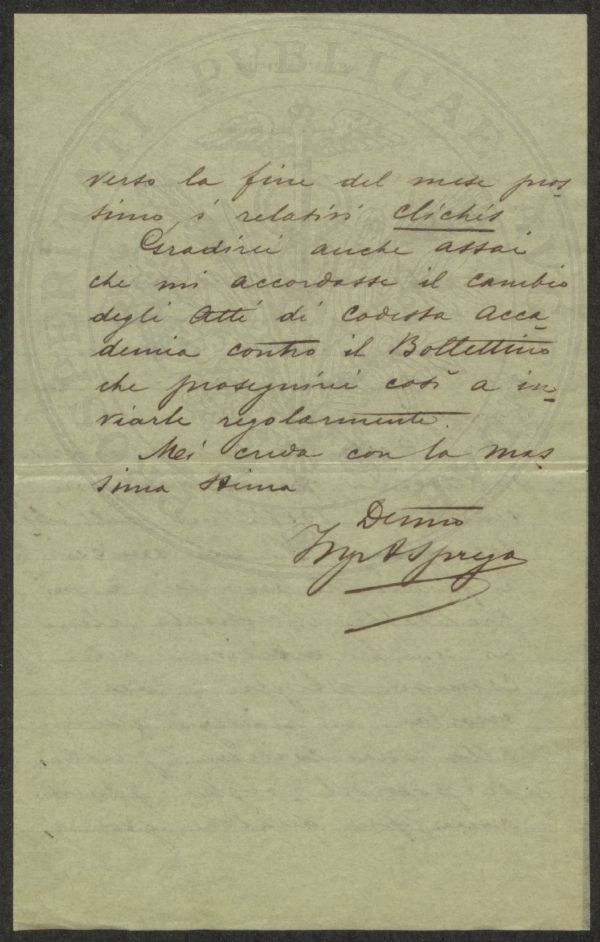 PERITATI PUBLICAE
verso la fine del mese pros
simo, i relativi clichés
Gradirei anche assai
che mi accordasse il cambio
degli Atti di codesta Acca=
demia contro il Bollettino
che proseguirei così a in=
viarle regolarmente.
Mi creda con la mas
sima stima
Devmo